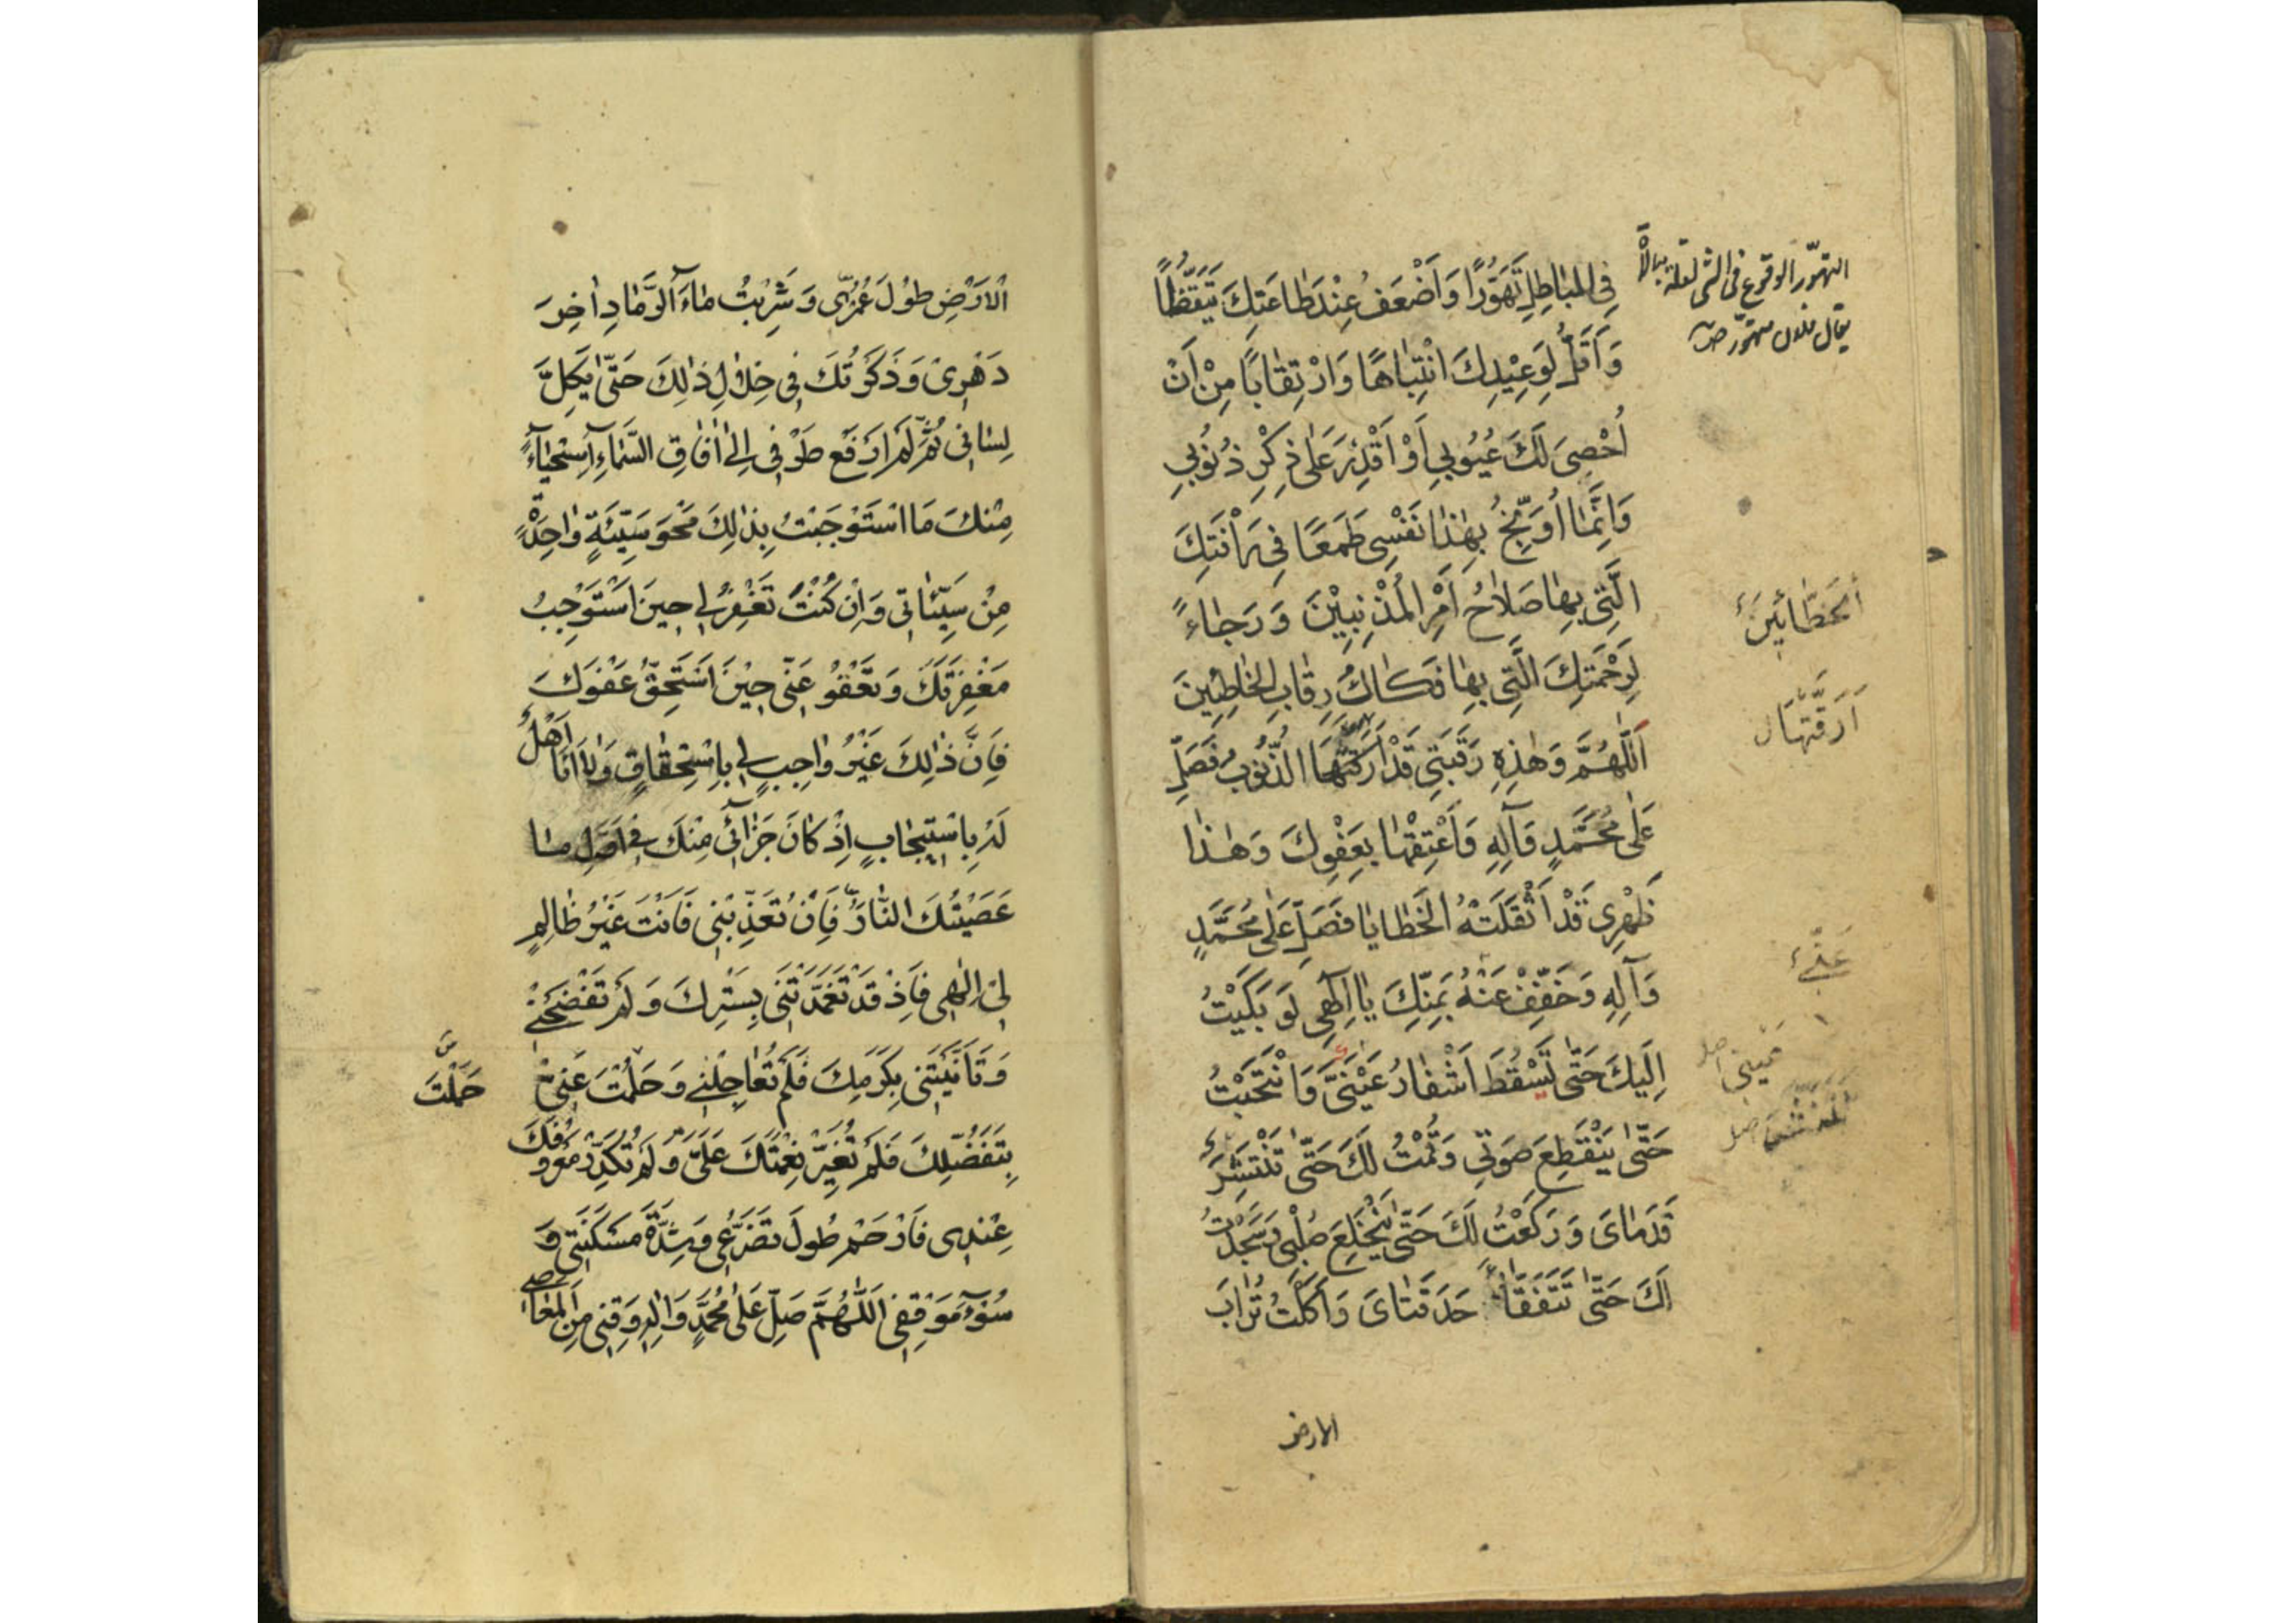 فِي الْبَاطِلِ تَهَوُّرًا وَاَضْعَفُ عِنْدَ طَاعَتِكَ تَيَقُّظًا
وَاَقَلُّ لِوَعِيْدِكَ انْتِبَاهًا وَارْتِقَابًا مِنْ اَنْ
اُحْصِىَ لَكَ عُيُوبِي اَوْ اَقْدِرَ عَلٰى ذِكْرِ ذُنُوبِي
وَاِنَّمَا اُوَبِّخُ بِهٰذَا نَفْسِى طَمَعًا فِي رَأْفَتِكَ
الَّتِي بِهَا صَلَاحُ اَمْرِ الْمُذْنِبِيْنَ وَرَجَاءً
لِرَحْمَتِكَ الَّتِي بِهَا فَكَاكُ رِقَابِ الْخَاطِئِينَ
اَللّٰهُمَّ وَهٰذِهِ رَقَبَتِي قَدْ اَرَقَّتْهَا الذُّنُوبُ فَصَلِّ
عَلٰى مُحَمَّدٍ وَآلِهِ وَاَعْتِقْهَا بِعَفْوِكَ وَهٰذَا
ظَهْرِى قَدْ اَثْقَلَتْهُ الْخَطَايَا فَصَلِّ عَلٰى مُحَمَّدٍ
وَآلِهِ وَخَفِّفْ عَنْهُ بِمَنِّكَ يَا اِلٰهِي لَوْ بَكَيْتُ
اِلَيْكَ حَتّٰى تَسْقُطَ اَشْفَارُ عَيْنَيَّ وَانْتَحَبْتُ
حَتّٰى يَنْقَطِعَ صَوْتِي وَقُمْتُ لَكَ حَتّٰى تَنْتَشِرَ
قَدَمَاىَ وَرَكَعْتُ لَكَ حَتّٰى يَنْخَلِعَ صُلْبِي وَسَجَدْتُ
لَكَ حَتّٰى تَتَفَقَّأَ حَدَقَتَاىَ وَاَكَلْتُ تُرَابَ
الارض
التهوّر الوقوع فى الشئ لقلة مبالاة
يقال فلان متهوّر
اَلْخَطَّائِينَ
اَرَقَّتْهَا
الْاَرْضِ طُوْلَ عُمْرِي وَشَرِبْتُ مَاءَ الرَّمَادِ اٰخِرَ
دَهْرِىْ وَذَكَرْتُكَ فِي خِلَالِ ذٰلِكَ حَتّٰى يَكِلَّ
لِسَانِي ثُمَّ لَمْ اَرْفَعْ طَرْفِي اِلٰى اٰفَاقِ السَّمَاءِ اسْتِحْيَاءً
مِنْكَ مَا اسْتَوْجَبْتُ بِذٰلِكَ مَحْوَ سَيِّئَةٍ وَاحِدَةٍ
مِنْ سَيِّئَاتِي وَاِنْ كُنْتَ تَغْفِرُ لِي حِينَ اَسْتَوْجِبُ
مَغْفِرَتَكَ وَتَعْفُو عَنِّي حِيْنَ اَسْتَحِقُّ عَفْوَكَ
فَاِنَّ ذٰلِكَ غَيْرُ وَاجِبٍ لِي بِاسْتِحْقَاقٍ وَلَا اَنَا اَهْلٌ
لَهُ بِاسْتِيجَابٍ اِذْ كَانَ جَزَائِي مِنْكَ فِي اَوَّلِ مَا
عَصَيْتُكَ النَّارَ فَاِنْ تُعَذِّبْنِي فَاَنْتَ غَيْرُ ظَالِمٍ
لِي اِلٰهِي فَاِذْ قَدْ تَغَمَّدْتَنِي بِسَتْرِكَ وَلَمْ تَفْضَحْنِي
وَتَاَنَّيْتَنِي بِكَرَمِكَ فَلَمْ تُعَاجِلْنِي وَحَلُمْتَ عَنِّي
حَلُمْتَ
بِتَفَضُّلِكَ فَلَمْ تُغَيِّرْ نِعْمَتَكَ عَلَيَّ وَلَمْ تُكَدِّرْ مَعْرُوفَكَ
عِنْدِى فَارْحَمْ طُولَ تَضَرُّعِي وَشِدَّةَ مَسْكَنَتِي وَ
سُوْءَ مَوْقِفِي اَللّٰهُمَّ صَلِّ عَلٰى مُحَمَّدٍ وَاٰلِهِ وَقِنِي مِنَ الْمَعَاصِي